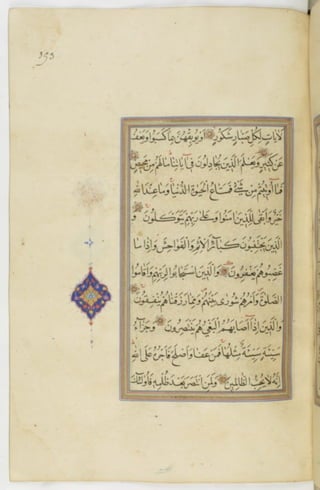 ۳۵۳
لَآيَاتٍ لِكُلِّ صَبَّارٍ شَكُورٍ أَوْ يُوبِقْهُنَّ بِمَا كَسَبُوا وَيَعْفُ
عَنْ كَثِيرٍ وَيَعْلَمَ الَّذِينَ يُجَادِلُونَ فِي آيَاتِنَا مَا لَهُمْ مِنْ مَحِيصٍ
فَمَا أُوتِيتُمْ مِنْ شَيْءٍ فَمَتَاعُ الْحَيٰوةِ الدُّنْيَا وَمَا عِنْدَ اللهِ
خَيْرٌ وَأَبْقَى لِلَّذِينَ آمَنُوا وَعَلَى رَبِّهِمْ يَتَوَكَّلُونَ وَ
الَّذِينَ يَجْتَنِبُونَ كَبَائِرَ الْإِثْمِ وَالْفَوَاحِشَ وَإِذَا مَا
غَضِبُوا هُمْ يَغْفِرُونَ وَالَّذِينَ اسْتَجَابُوا لِرَبِّهِمْ وَأَقَامُوا
الصَّلٰوةَ وَأَمْرُهُمْ شُورَى بَيْنَهُمْ وَمِمَّا رَزَقْنَاهُمْ يُنْفِقُونَ
وَالَّذِينَ إِذَا أَصَابَهُمُ الْبَغْيُ هُمْ يَنْتَصِرُونَ وَجَزَاءُ
سَيِّئَةٍ سَيِّئَةٌ مِثْلُهَا فَمَنْ عَفَا وَأَصْلَحَ فَأَجْرُهُ عَلَى اللهِ
إِنَّهُ لَا يُحِبُّ الظَّالِمِينَ وَلَمَنِ انْتَصَرَ بَعْدَ ظُلْمِهِ فَأُولَئِكَ